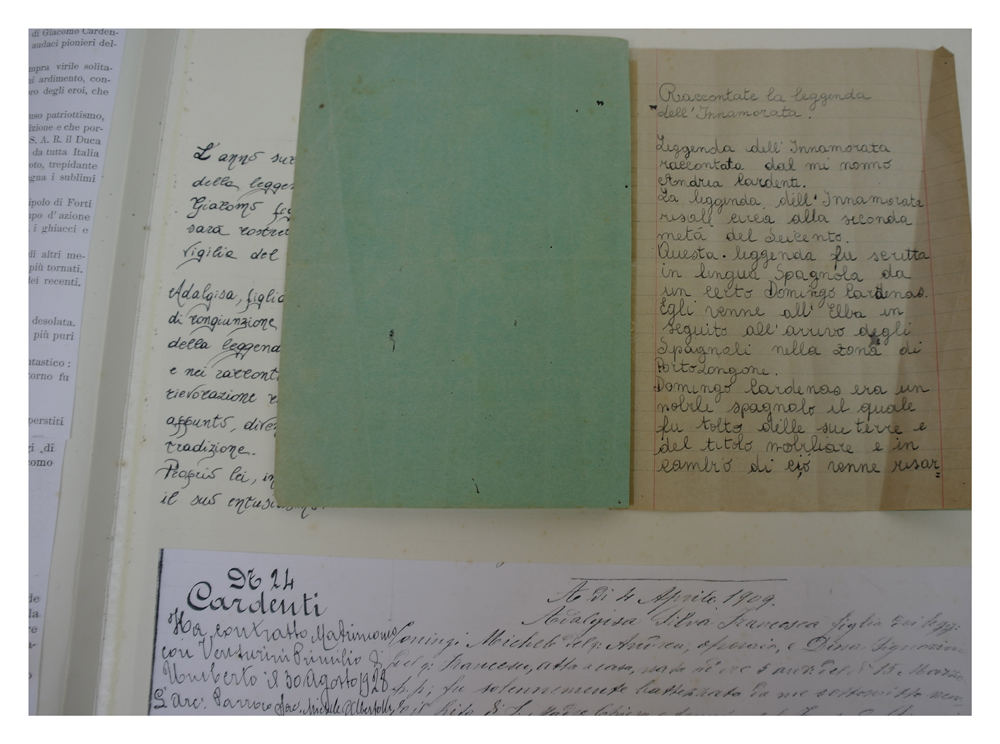 di Giacomo Carden-
audaci pionieri del-
mpra virile solita-
ni ardimento, con-
ro degli eroi, che
uso patriottismo,
izione e che por-
S. A. R. il Duca
da tutta Italia
oto, trepidante
egna i sublimi
ipolo di Forti
upo d'azione
i ghiacci e
di altri me-
più tornati.
dei recenti.
desolata.
più puri
ntastico:
torno fu
uperstiti
di
como
L'anno suc
della leggen
Giacomo
sarà costret
vigilia del
Adalgisa, figlia
di congiunzione
della leggenda
e nei raccont
rievocazione
appunto, dive
tradizione.
Proprio lei, in
il suo entus
Raccontate la leggenda
dell'Innamorata.
Leggenda dell'Innamorata
raccontata dal mi nonno
Andrea Cardenti.
La leggenda dell'Innamorata
risali circa alla seconda
metà del Seicento.
Questa leggenda fu scritta
in lingua Spagnola da
un certo Domingo Cardenas.
Egli venne all'Elba in
seguito all'arrivo degli
Spagnoli nella zona di
Portolongone.
Domingo Cardenas era un
nobili spagnolo il quale
fu tolto delle sue terre e
del titolo nobiliare e in
cambio di ciò venne risar=
No 24
Cardenti
Ha contratto Matrimonio
con Venturini Primilio di
Umberto il 30 Agosto 1928
L'Arc. Parroco Sac. Michele
A dì 4 Aprile 1909.
Adalgisa Silva Francesca figlia
Michele del q. Andrea, operaio, e Dina
del q. Francesco, atta a casa, nata
fu solennemente battezzata da me sottoscritto